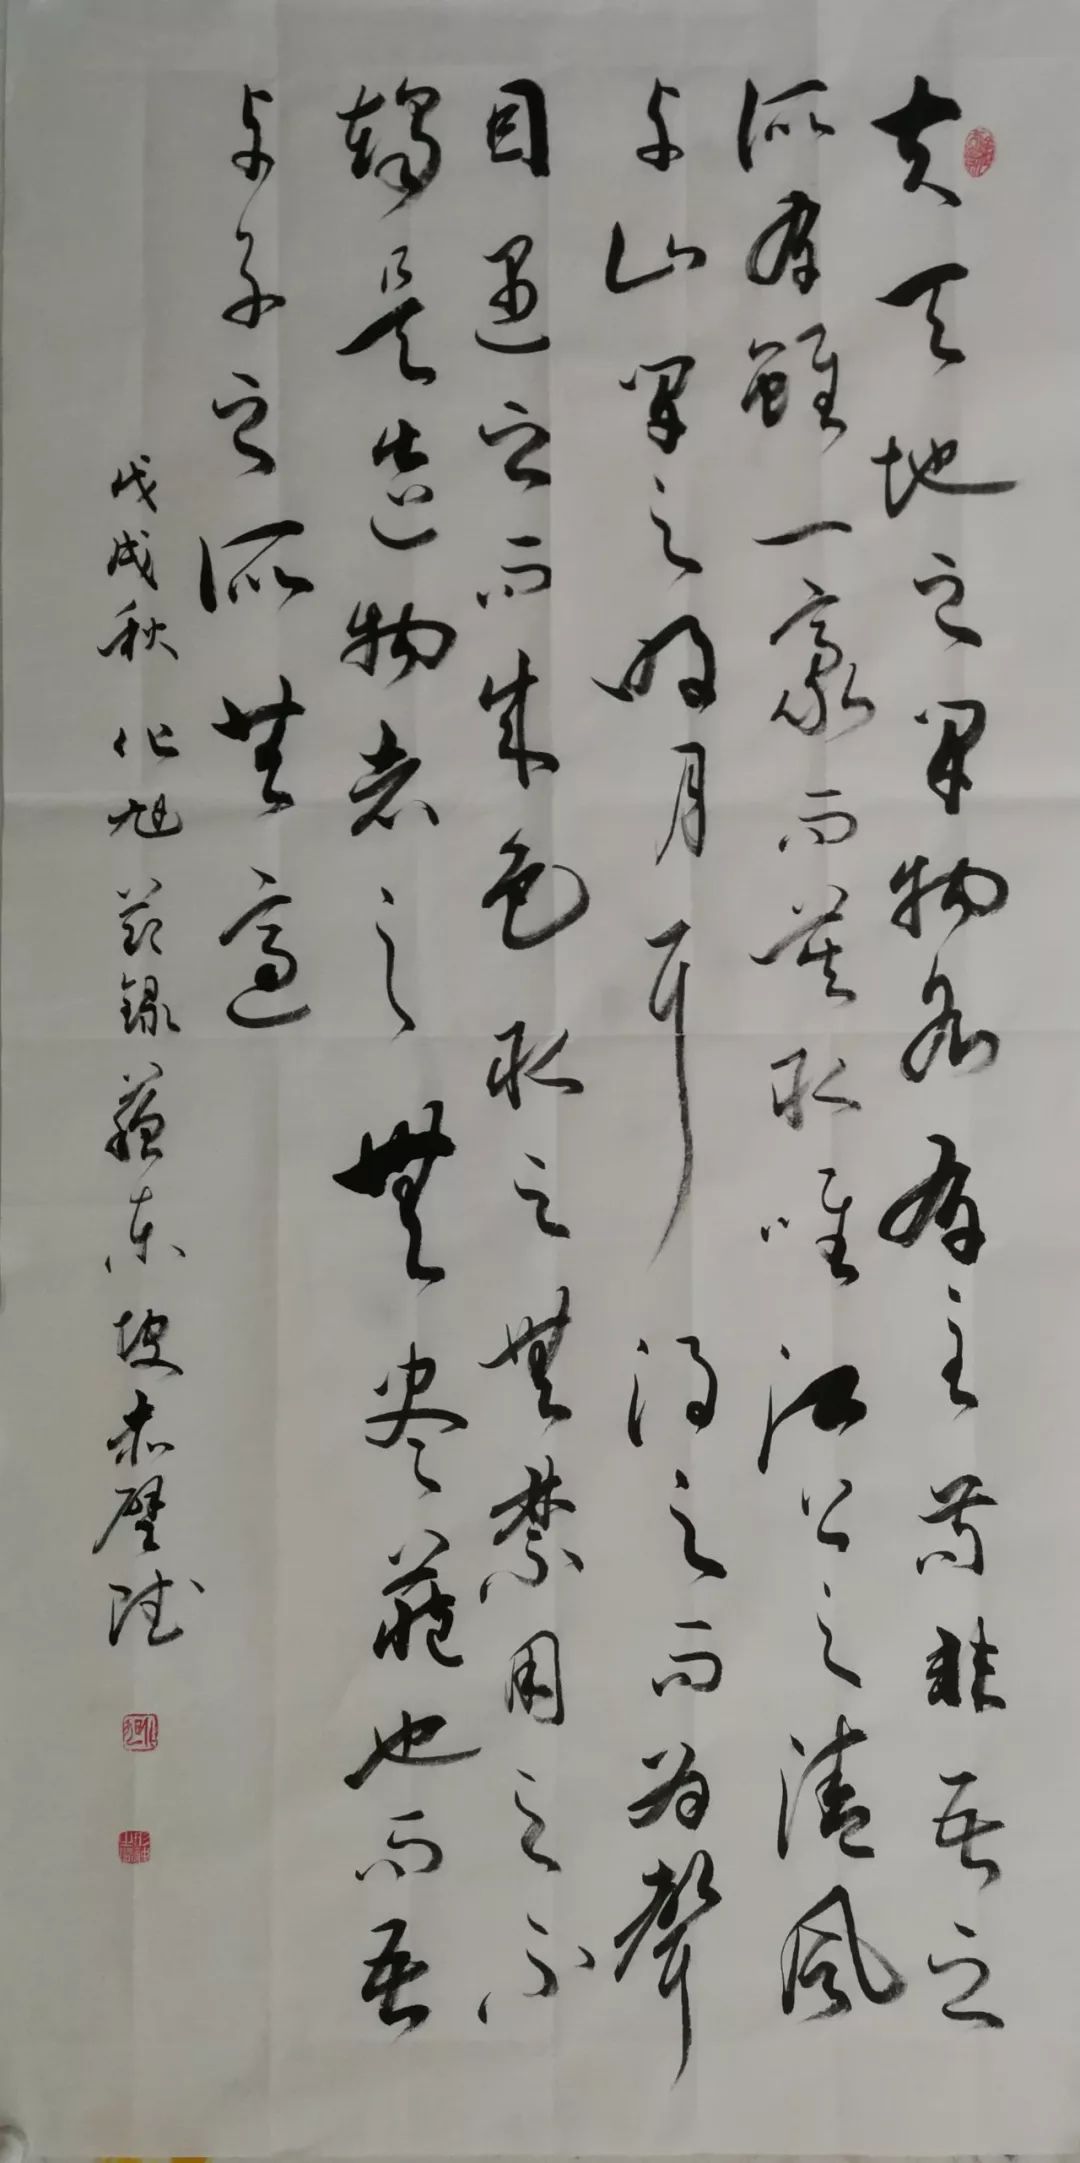 夫天地之間物各有主苟非吾之
所有雖一豪而莫取唯江上之清風
与山間之明月耳得之而為聲
目遇之而成色取之無禁用之不
竭是造物者之無尽藏也而吾
与子之所無適
戊戌秋作旭節録蘇東坡赤壁賦